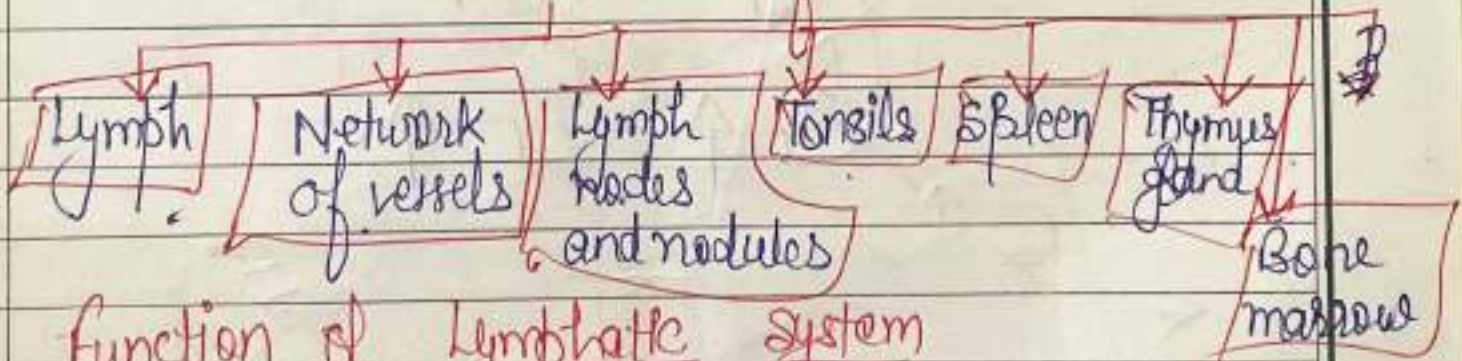 Lymph
Network
of vessels
Lymph
nodes
and nodules
Tonsils
Spleen
Thymus
gland
Bone
marrow
Function of Lymphatic System